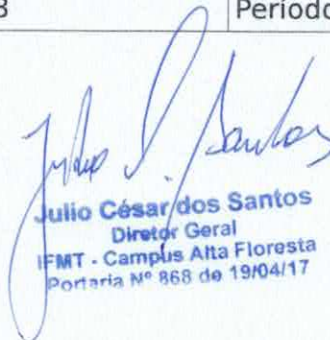 3 Período
Julio S. Santos
Julio César dos Santos
Diretor Geral
IFMT - Campus Alta Floresta
Portaria Nº 868 de 19/04/17